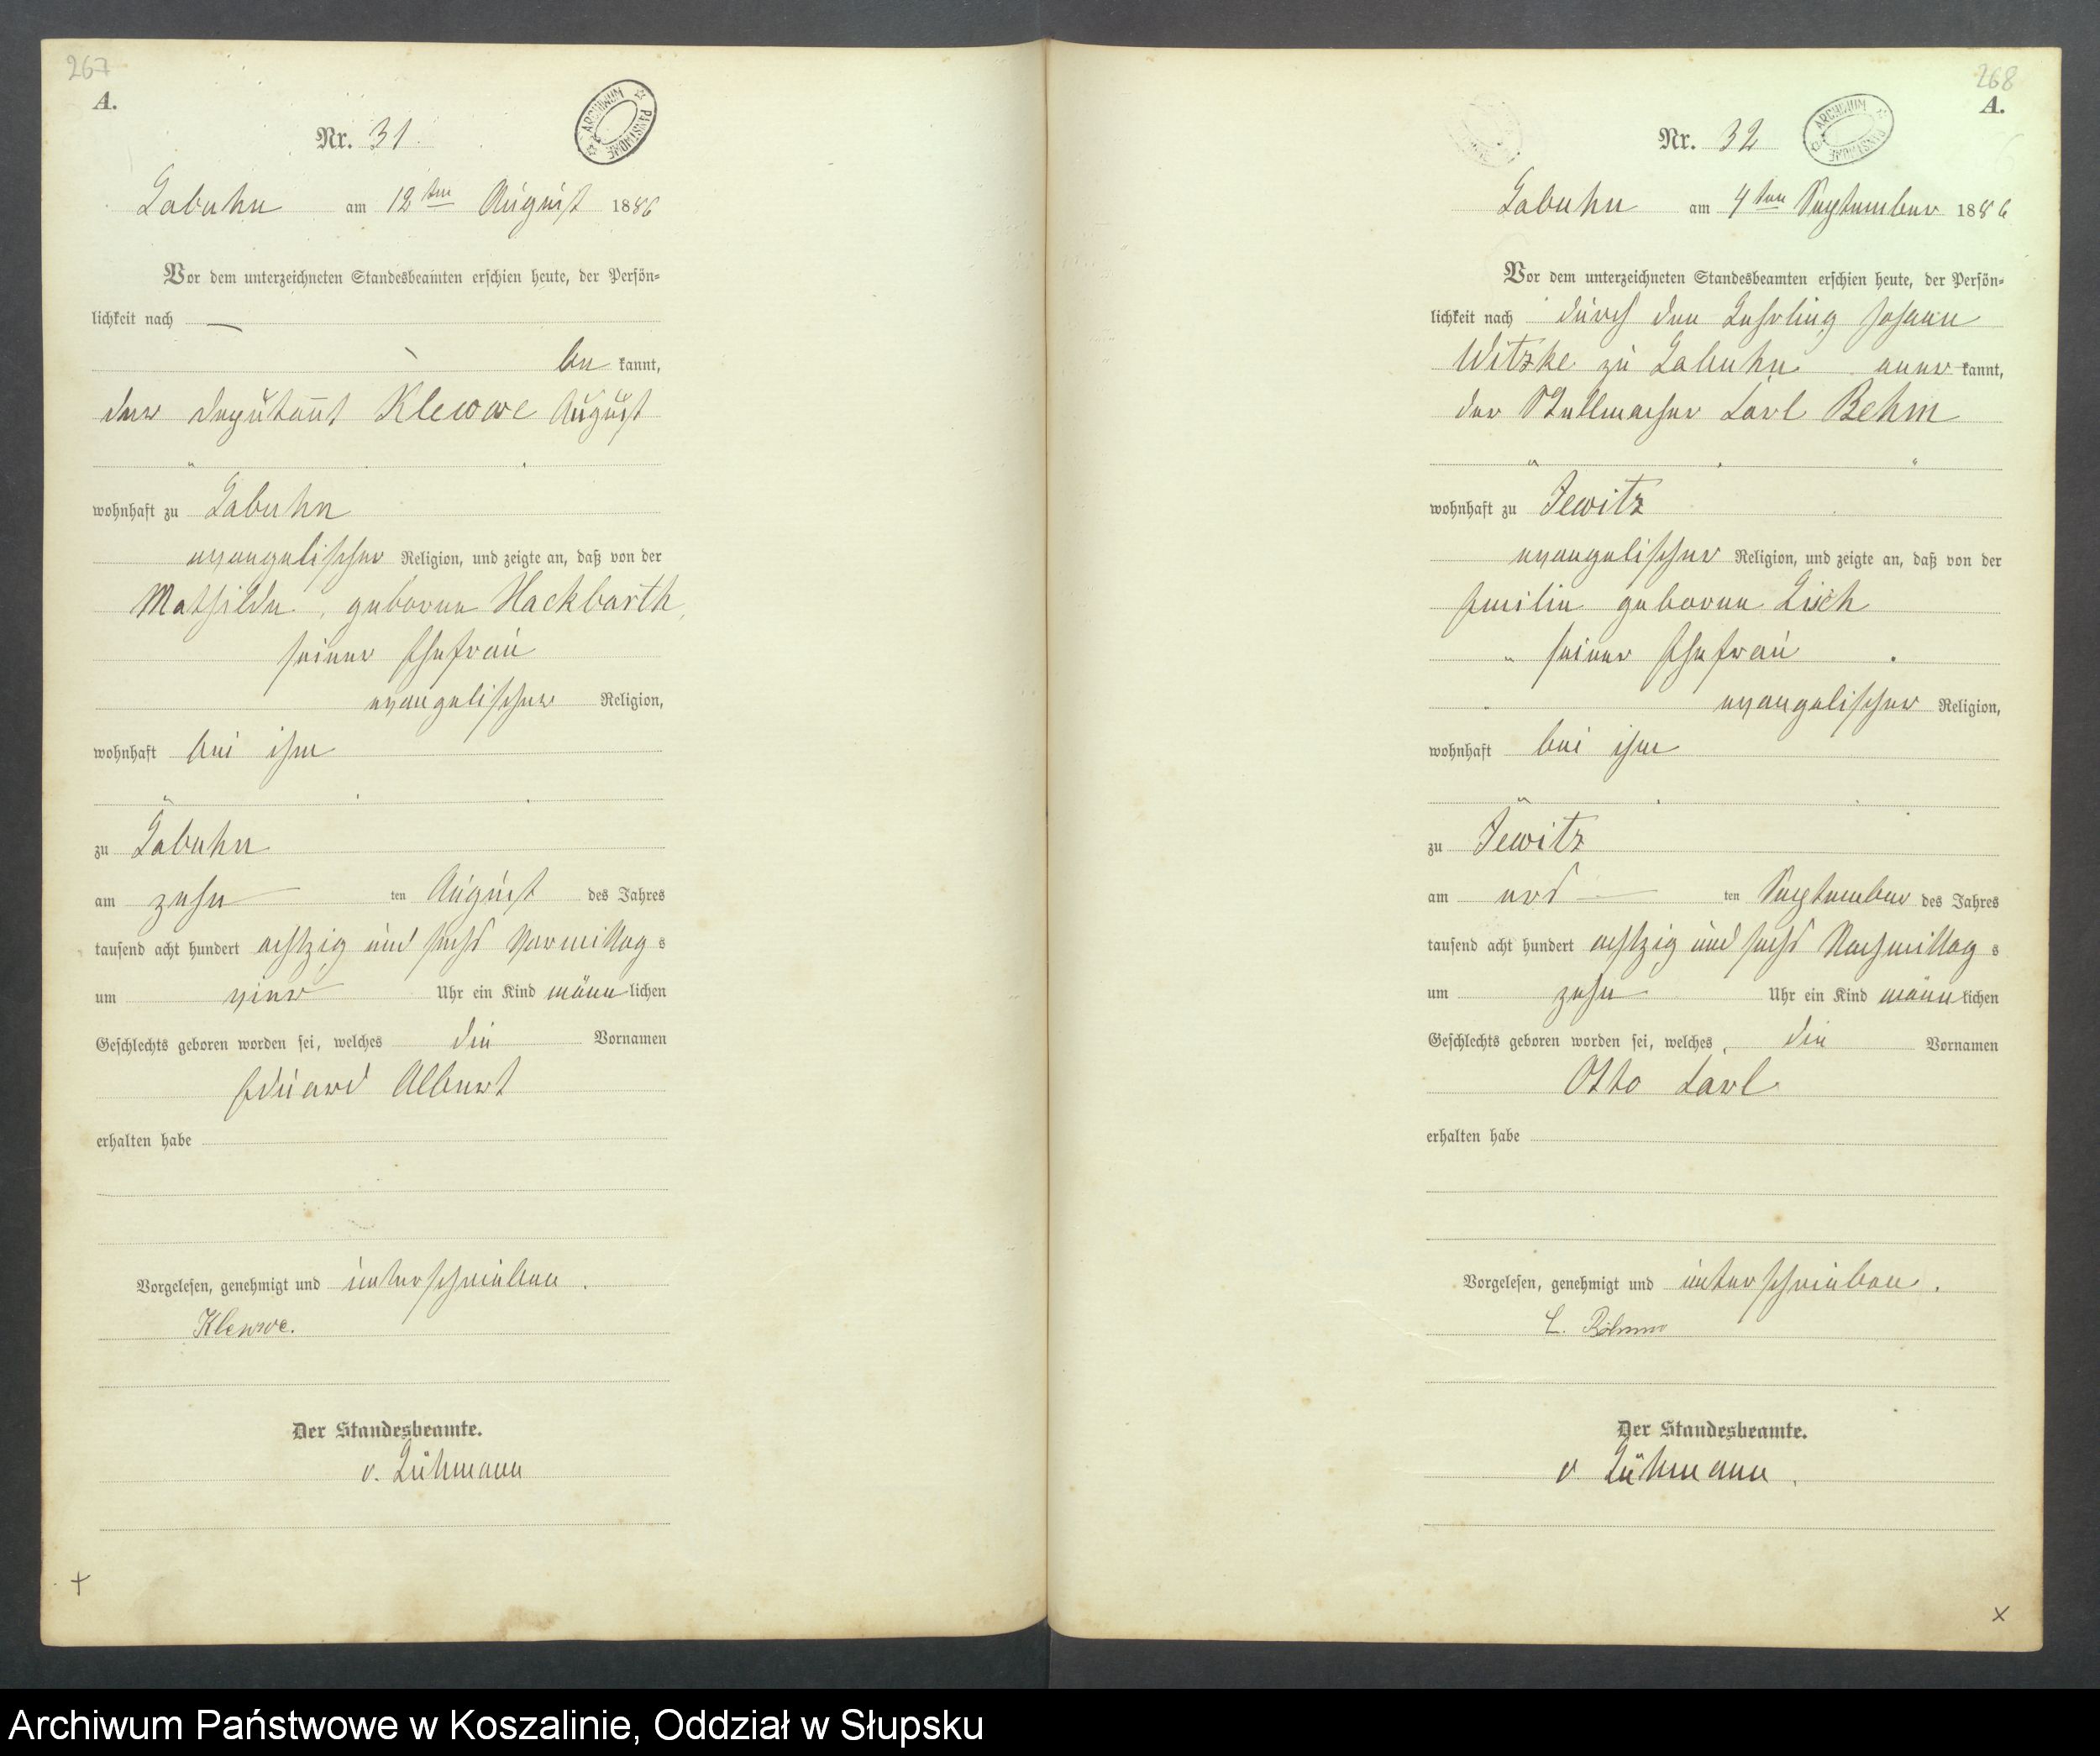 267
A.
ARCHIWUM PAŃSTWOWE
Nr. 31.
Labuhn am 12ten August 1886
Vor dem unterzeichneten Standesbeamten erschien heute, der Persön=
lichkeit nach —
be kannt,
der Deputant Klewwe August
wohnhaft zu Labuhn
evangelischer Religion, und zeigte an, daß von der
Mathilde, geborene Hackbarth,
seiner Ehefrau
evangelischer Religion,
wohnhaft bei ihm
zu Labuhn
am zehn ten August des Jahres
tausend acht hundert achtzig und sechs Vormittags
um vier Uhr ein Kind männlichen
Geschlechts geboren worden sei, welches die Vornamen
Eduard Albert
erhalten habe
Vorgelesen, genehmigt und unterschrieben.
Klewwe.
Der Standesbeamte.
v. Lühmann
268
A.
ARCHIWUM PAŃSTWOWE
Nr. 32
Labuhn am 4ten September 1886
Vor dem unterzeichneten Standesbeamten erschien heute, der Persön=
lichkeit nach durch den Lehrling Johann
Witzke zu Labuhn aner kannt,
der Stellmacher Carl Behm
wohnhaft zu Jewitz
evangelischer Religion, und zeigte an, daß von der
Emilie geborene Lisch
seiner Ehefrau
evangelischer Religion,
wohnhaft bei ihm
zu Jewitz
am ers ten September des Jahres
tausend acht hundert achtzig und sechs Nachmittags
um zehn Uhr ein Kind männlichen
Geschlechts geboren worden sei, welches die Vornamen
Otto Carl
erhalten habe
Vorgelesen, genehmigt und unterschrieben.
C.
Der Standesbeamte.
v Lühmann.
Archiwum Państwowe w Koszalinie, Oddział w Słupsku